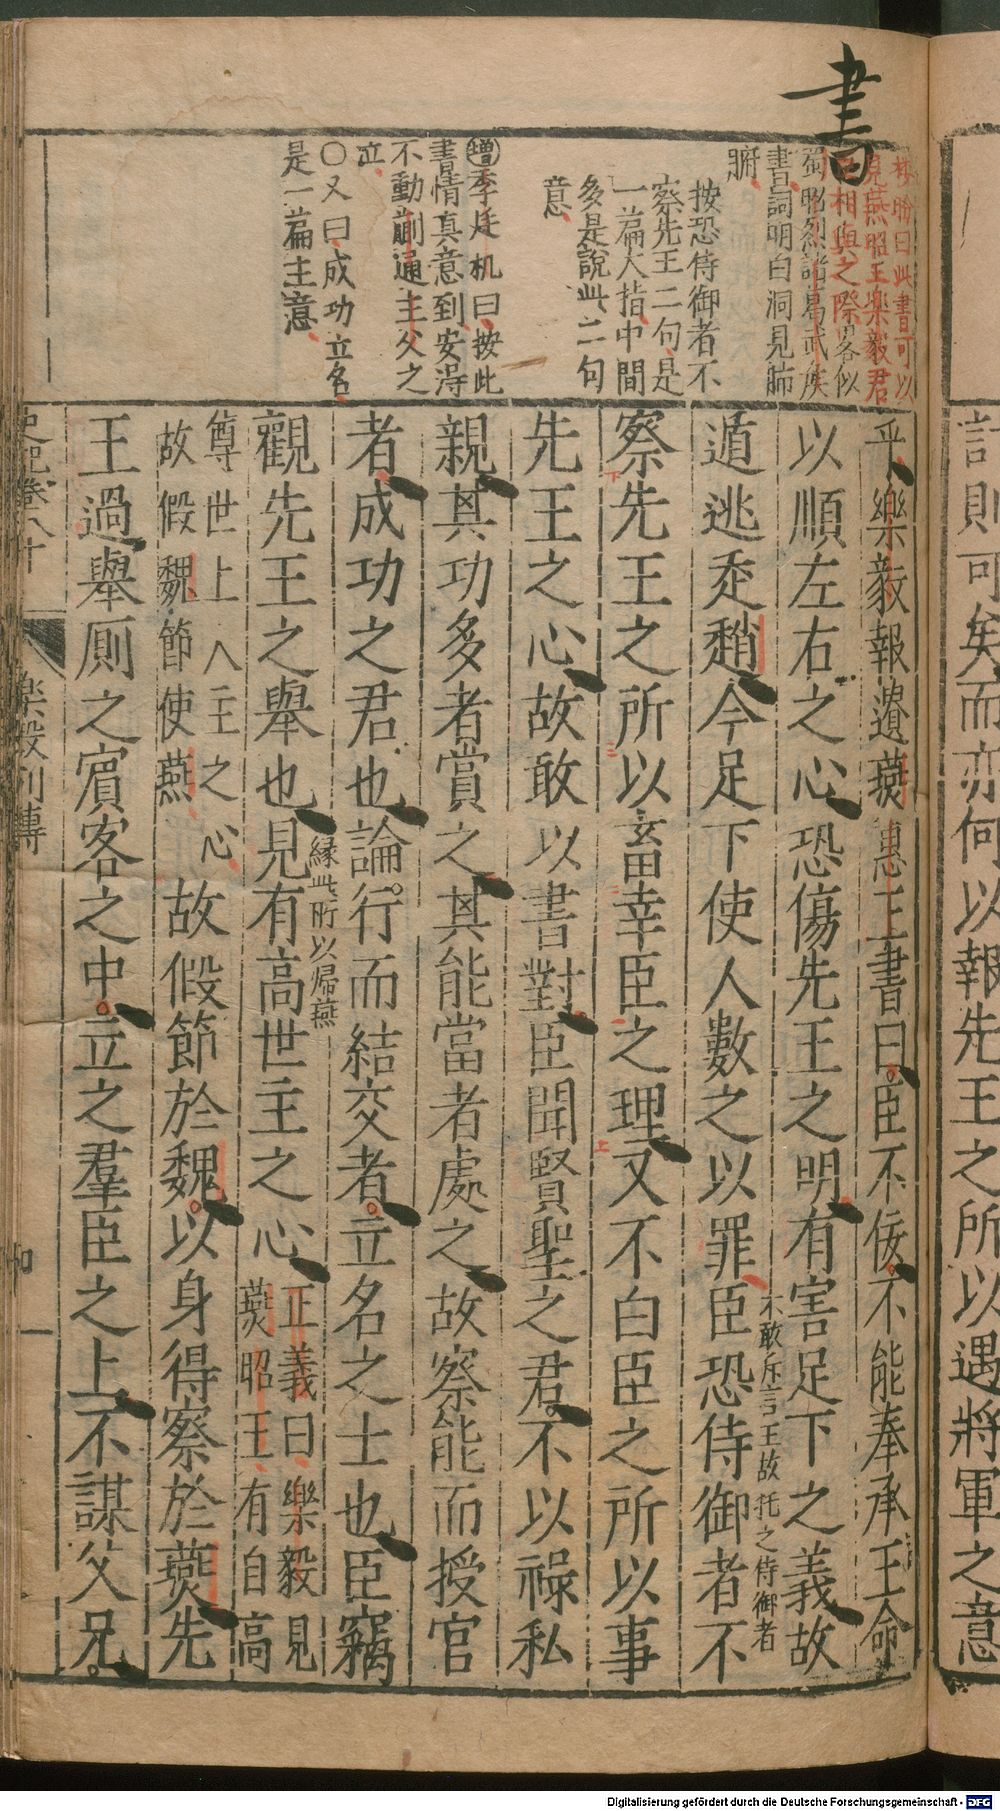 計則可矣而亦何以報先王之所以遇將軍之意
書
林盼曰此書可以
見燕昭王樂毅君
臣相與之際畧似
蜀昭烈諸葛武侯
書詞明白洞見肺
腑
按恐侍御者不
察先王二句是
一篇大指中間
多是說此二句
意
增季廷机曰按此
書情真意到安得
不動蒯通主父之
泣
〇又曰成功立名
是一篇主意
乎樂毅報遺燕惠王書曰臣不佞不能奉承王命
以順左右之心恐傷先王之明有害足下之義故
遁逃走趙今足下使人數之以罪臣恐侍御者不
不敢斥言王故托之侍御者
察先王之所以畜幸臣之理又不白臣之所以事
先王之心故敢以書對臣聞賢聖之君不以祿私
親其功多者賞之其能當者處之故察能而授官
者成功之君也論行而結交者立名之士也臣竊
緣此所以歸燕
觀先王之舉也見有高世主之心正義曰樂毅見
燕昭王有自高
尊世上人主之心
故假魏節使燕
故假節於魏以身得察於燕先
王過舉厠之賓客之中立之羣臣之上不謀父兄
史記卷八十
樂毅列傳
四
Digitalisierung gefördert durch die Deutsche Forschungsgemeinschaft - DFG